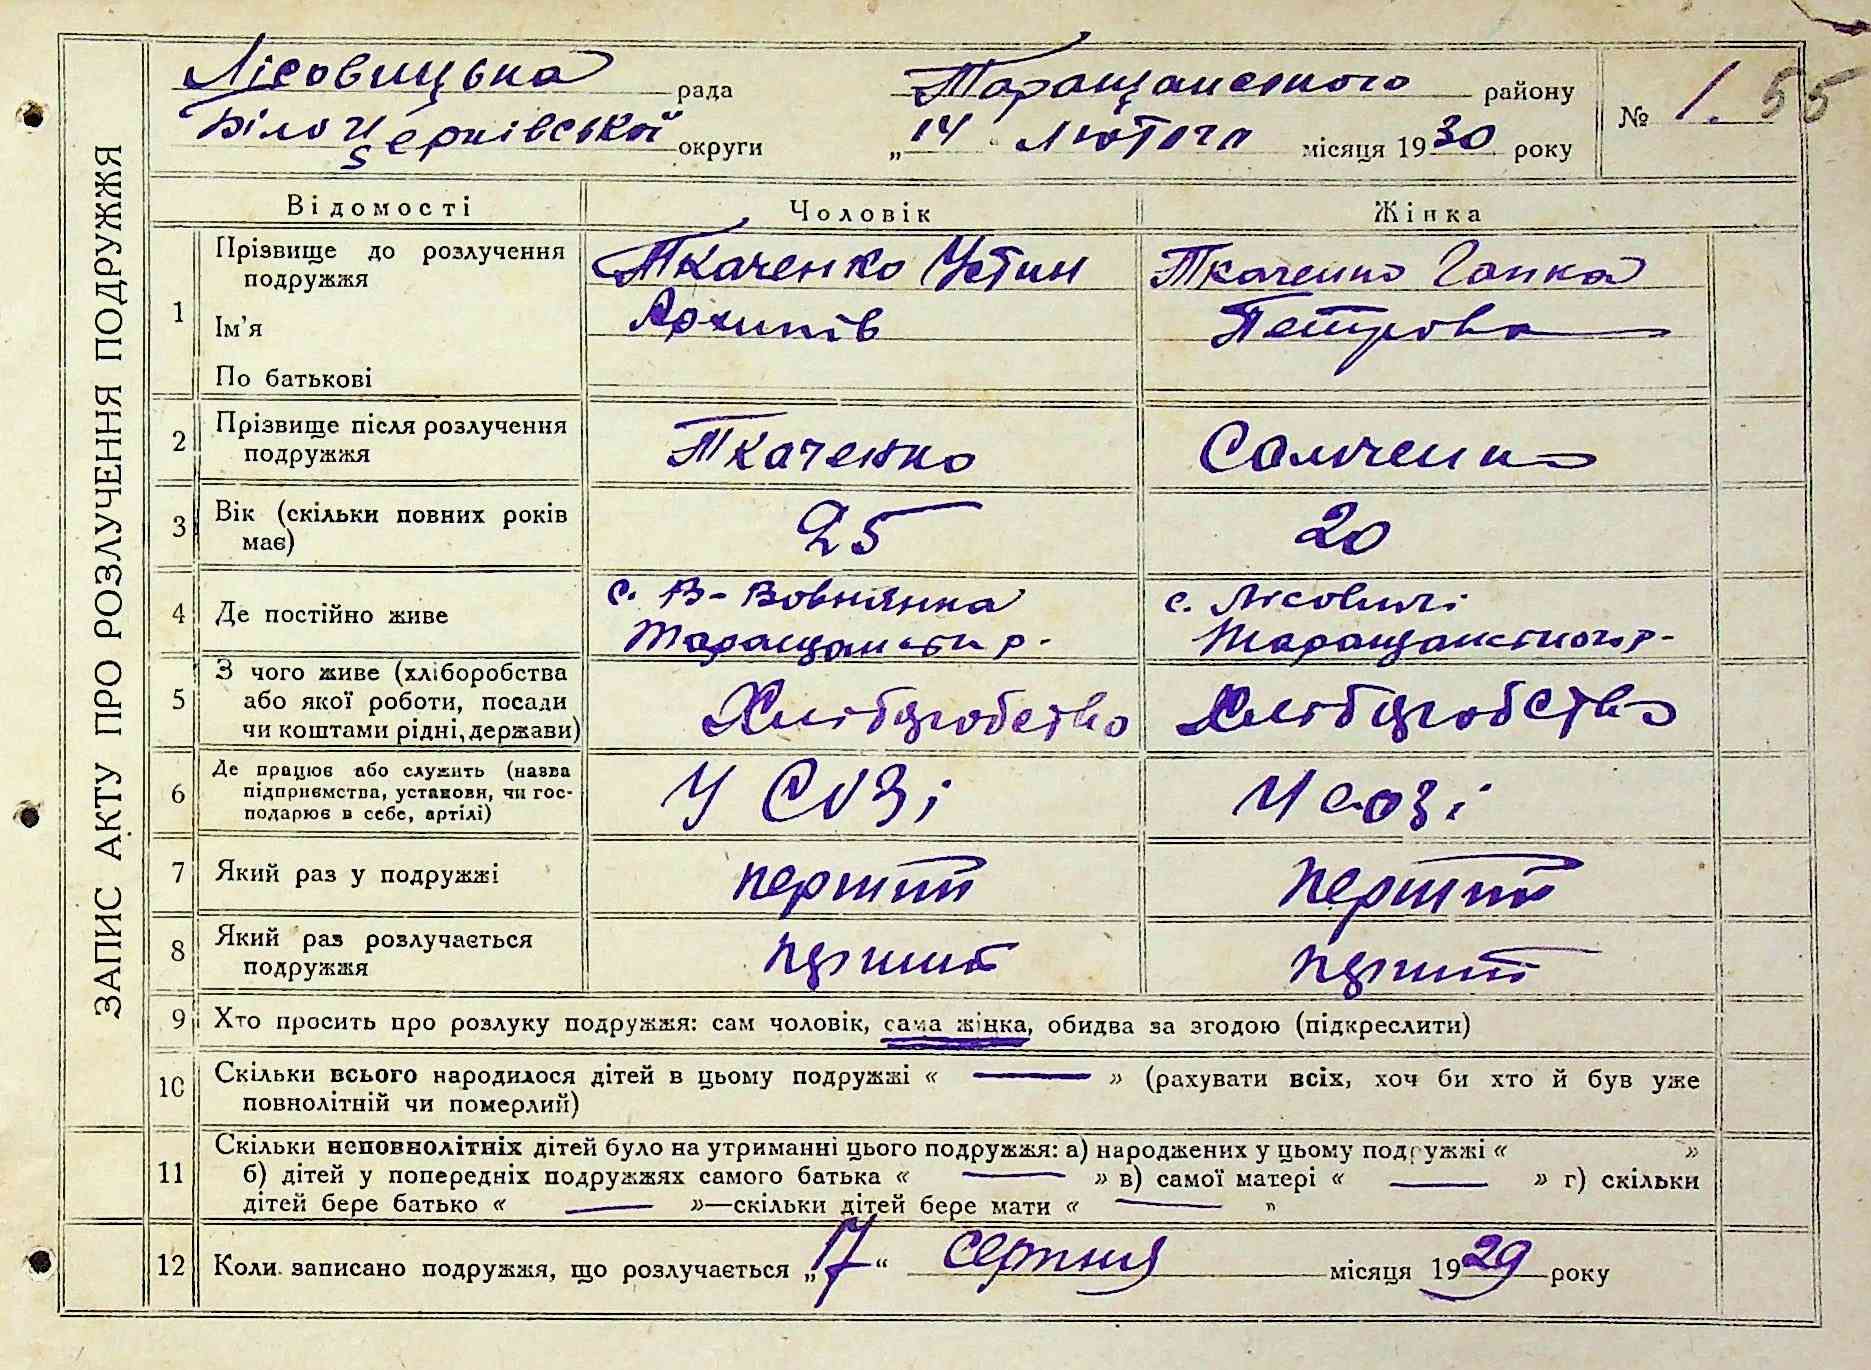 ЗАПИС АКТУ ПРО РОЗЛУЧЕННЯ ПОДРУЖЖЯ
Лісовицька рада Таращанського району № 1. 55
Білоцерківської округи „14“ лютого місяця 1930 року
Відомості Чоловік Жінка
1 Прізвище до розлучення подружжя Ткаченко Устин Ткаченко Гапка
Ім'я Архипів Петрова
По батькові
2 Прізвище після розлучення подружжя Ткаченко Самченко
3 Вік (скільки повних років має) 25 20
4 Де постійно живе с. В-Вовнянка с. Лісовичі
Таращанськ р. Таращанського р-
5 З чого живе (хліборобства або якої роботи, посади чи коштами рідні, держави) Хліборобство Хліборобство
6 Де працює або служить (назва підприємства, установи, чи господарює в себе, артілі) У СОЗі У созі
7 Який раз у подружжі перший перший
8 Який раз розлучається подружжя перший перший
9 Хто просить про розлуку подружжя: сам чоловік, сама жінка, обидва за згодою (підкреслити)
10 Скільки всього народилося дітей в цьому подружжі « — » (рахувати всіх, хоч би хто й був уже
повнолітній чи померлий)
11 Скільки неповнолітніх дітей було на утриманні цього подружжя: а) народжених у цьому подружжі « »
б) дітей у попередніх подружжях самого батька « — » в) самої матері « — » г) скільки
дітей бере батько « — »—скільки дітей бере мати « — »
12 Коли записано подружжя, що розлучається „17“ серпня місяця 1929 року